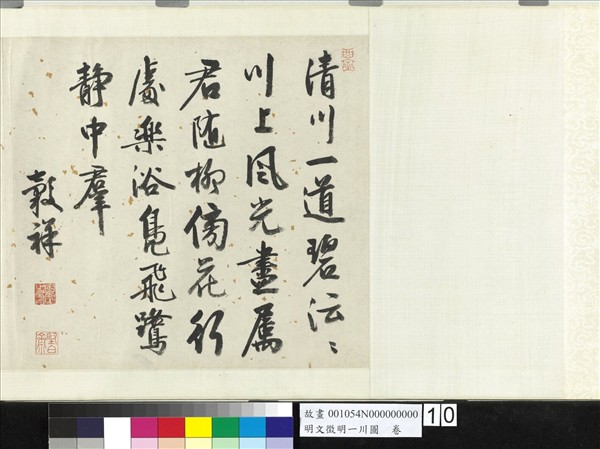 清川一道碧沄〻
川上風光盡屬
君随柳傍花行
處樂浴鳧飛鷺
靜中羣
穀祥
故畫 001054N000000000
明文徵明一川圖 卷
10